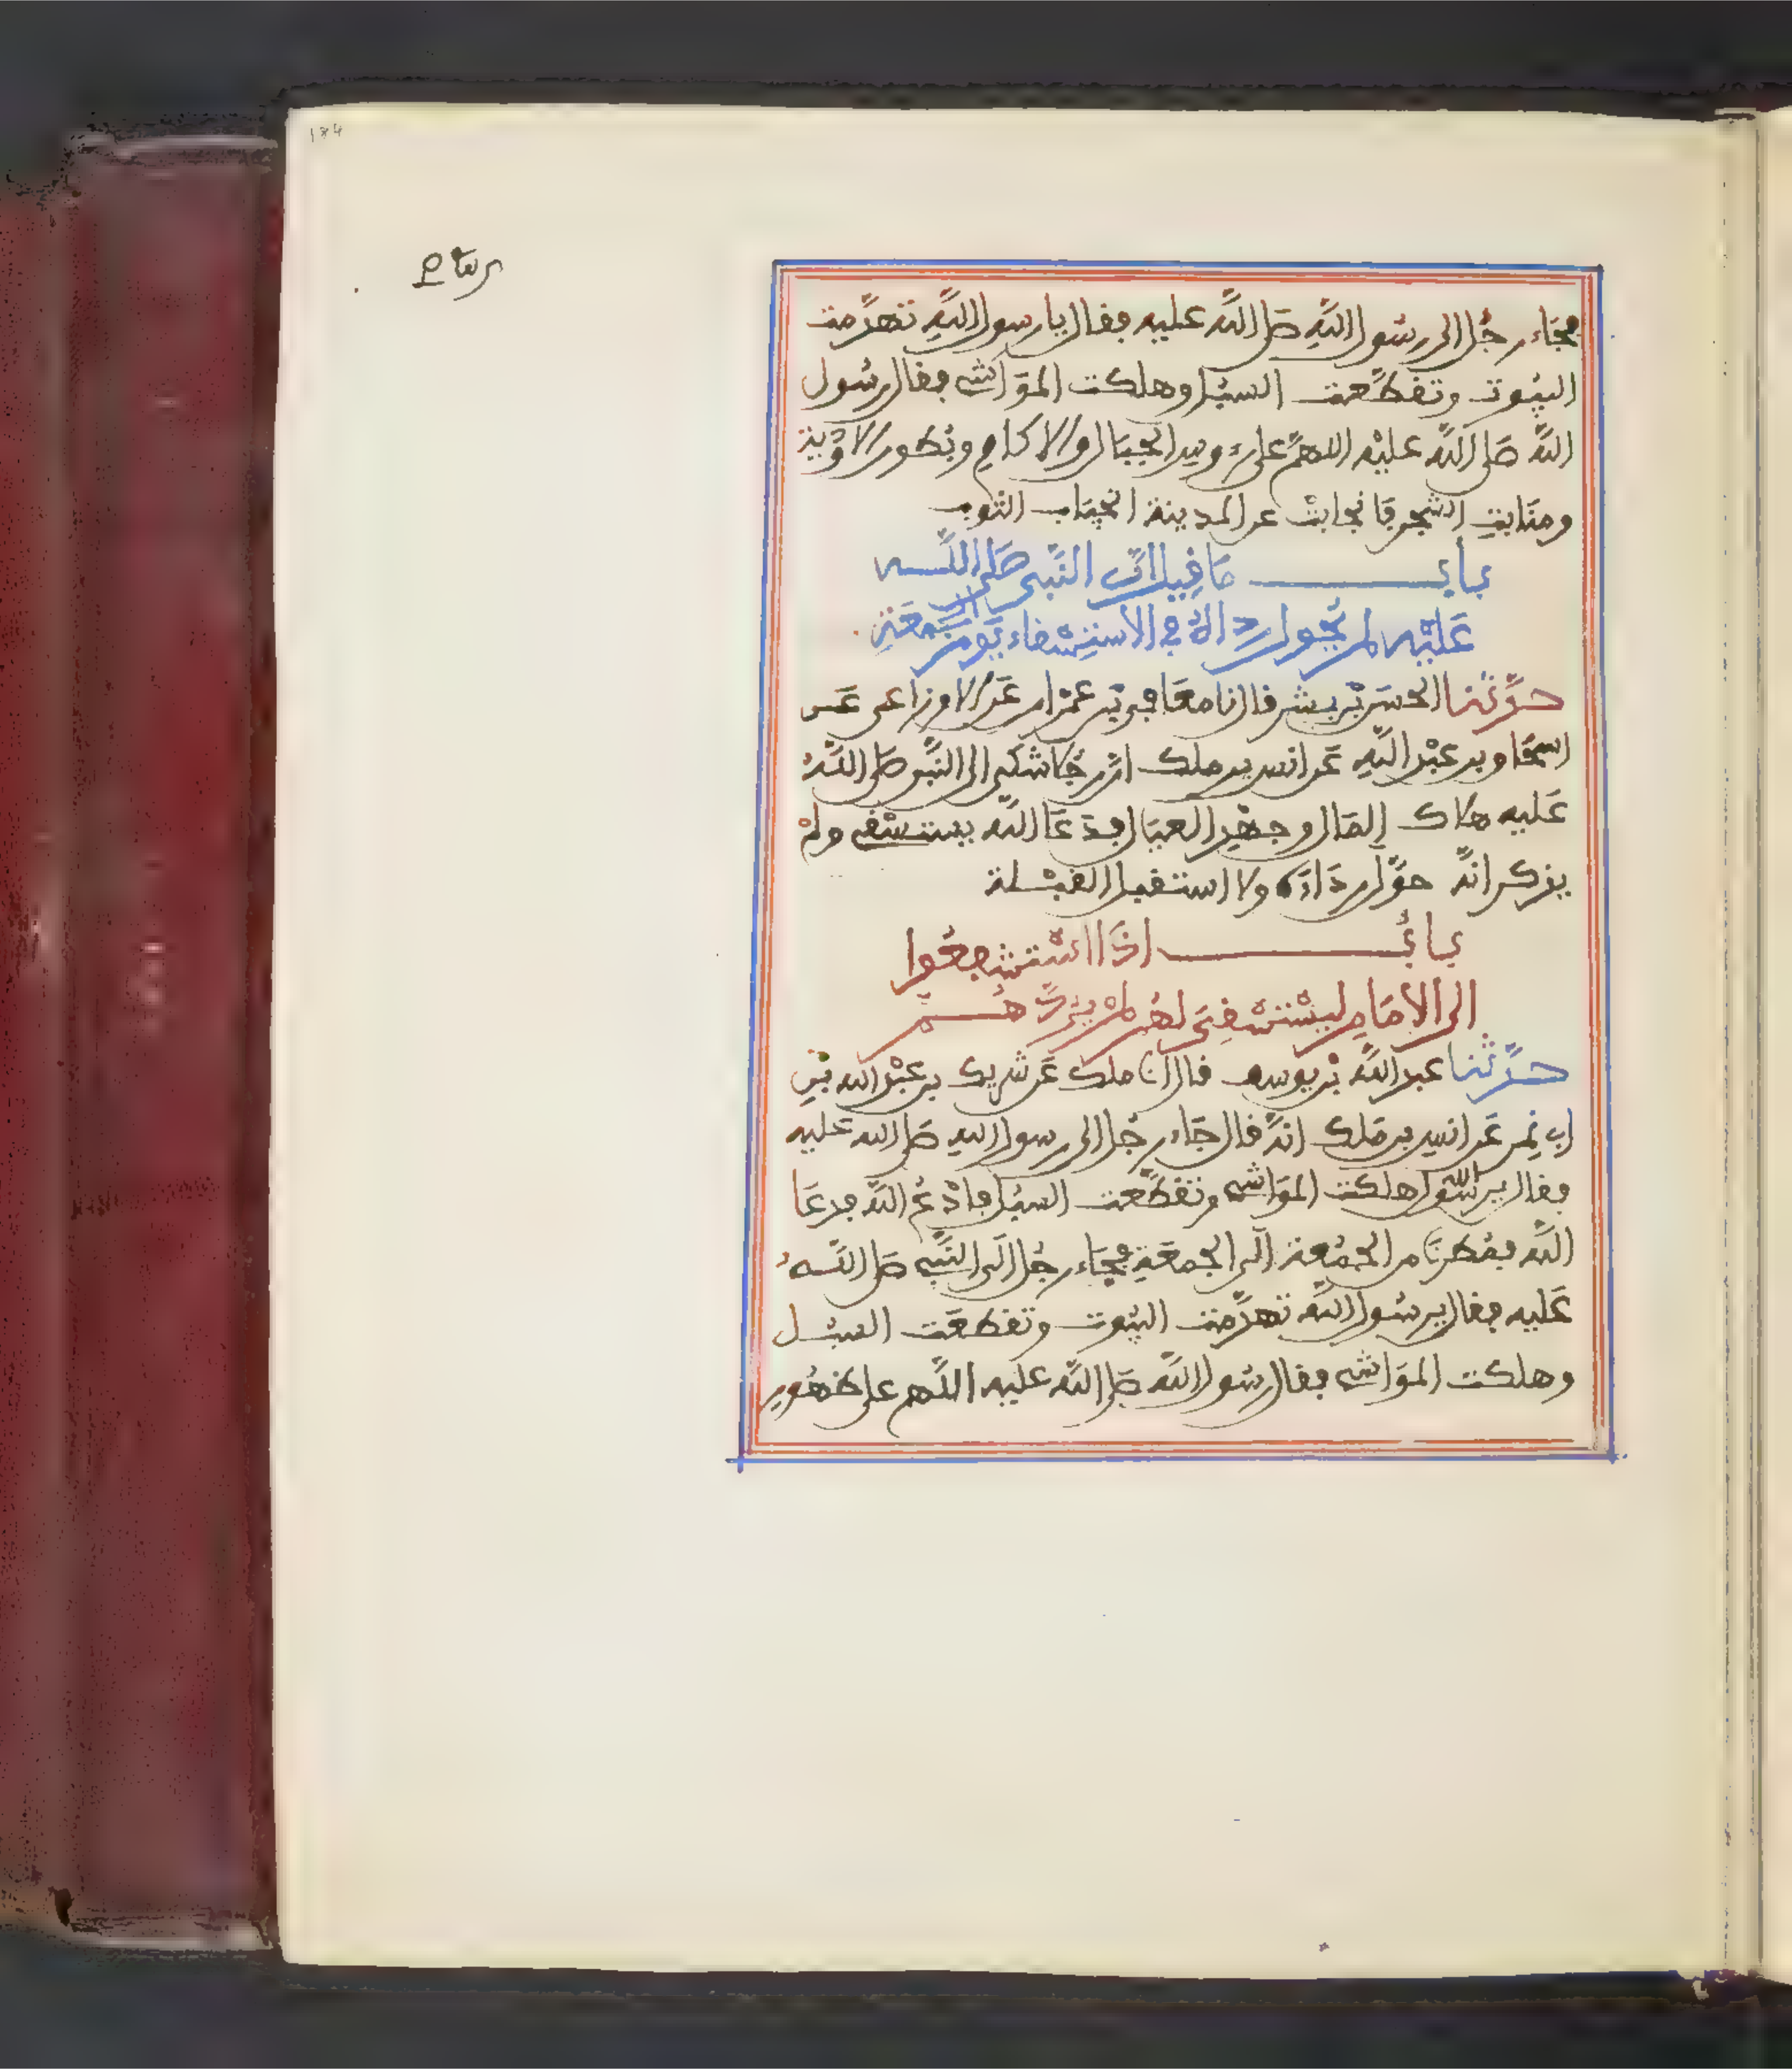 فجَاء رجُل الى رسُول اللَّهِ صَلى اللَّه عليه فقال يا رسول اللَّهِ تهدَّمت
البيُوت وتقطَّعت السبُل وهلكت الموَاشى فقال رسُول
اللَّه صَلى اللَّه عليْه اللهمَّ على رءوس الجبَال والاكام وبُطور الاوْدية
ومنَابت الشجر فانجابتْ عن المدينة انجيَاب الثوب
بابُ مَا قِيل انّ النَّبى صَلى اللَّه
عَليْه لم يُحول رداءهُ فى الاستِسْقاء يَوم الجمعَةِ
حدَّثنا الحسَن بْن بشر قال نا معَافى بْن عمْران عَن الاوزاعى عَن
اسحَاق بن عبْد اللَّهِ عَن انس بن ملك انَّ رجُلا شكى الى النَّبى صَلى اللَّهُ
عَليه هلاك المَال وجهْد العيَال فدَعَا اللَّه يستسْقى ولمْ
يذكر انَّه حوَّل ردَاءَه ولا استقبل القبْلة
بابُ اذَا اسْتشْفعُوا
الى الامَامِ ليسْتسْقِىَ لهُم لمْ يرُدَّهُم
حدَّثنا عبد اللَّه بْن يوسف قال انا ملك عَن شريك بن عبْد الله بْنِ
ابى نمِر عَن انس بن مَلك انهُ قال جَاء رجُل الى رسول اللهِ صَلى الله عَليه
فقال يرسُول الله هلكت الموَاشى وتقطَّعت السبُل فادْعُ اللَّه فدعَا
اللَّه فمُطرنَا من الجمُعة الَى الجمعَةِ فجَاء رجُل الَى النَّبى صَلى اللَّهُ
عَليه فقال يرسُول اللَّه تهدَّمت البيُوت وتقطعَت السبُل
وهلكت الموَاشى فقال رسُول اللَّه صَلى اللَّه عليه اللَّهم على ظهُور